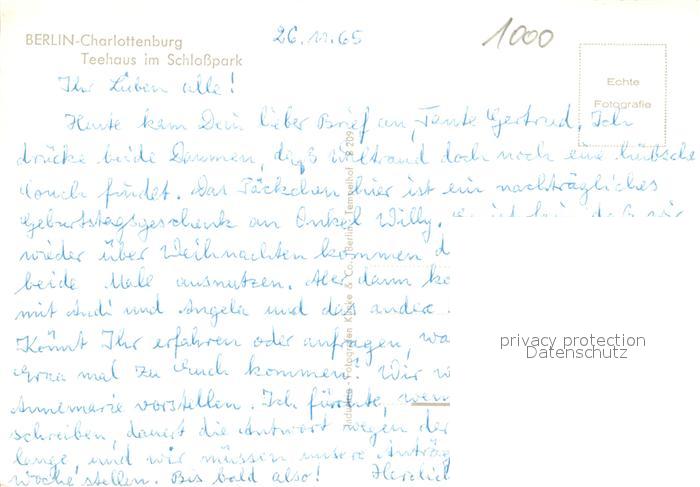 BERLIN-Charlottenburg
Teehaus im Schloßpark
26.11.65
1000
Echte
Fotografie
Ihr Lieben alle!
Heute kam Dein lieber Brief an, Tante Gertrud. Ich
drücke beide Daumen, daß Waltraud doch noch eine hübsche
Couch findet. Das Päckchen hier ist ein nachträgliches
Geburtstagsgeschenk an Onkel Willy.
wieder über Weihnachten kommen d
beide Male ausnutzen. Aber dann kö
mit Andi und Angela und das andere
Könnt Ihr erfahren oder anfragen, wa
mal zu Euch kommen? Wir w
Annemarie vorstellen. Ich fürchte, wenn
schreiben, dauert die Antwort wegen der
lange, und wir müssen unsere Anträg
Woche stellen. Bis bald also! Herzlich
Klinke & Co. Berlin-Tempelhof
privacy protection
Datenschutz